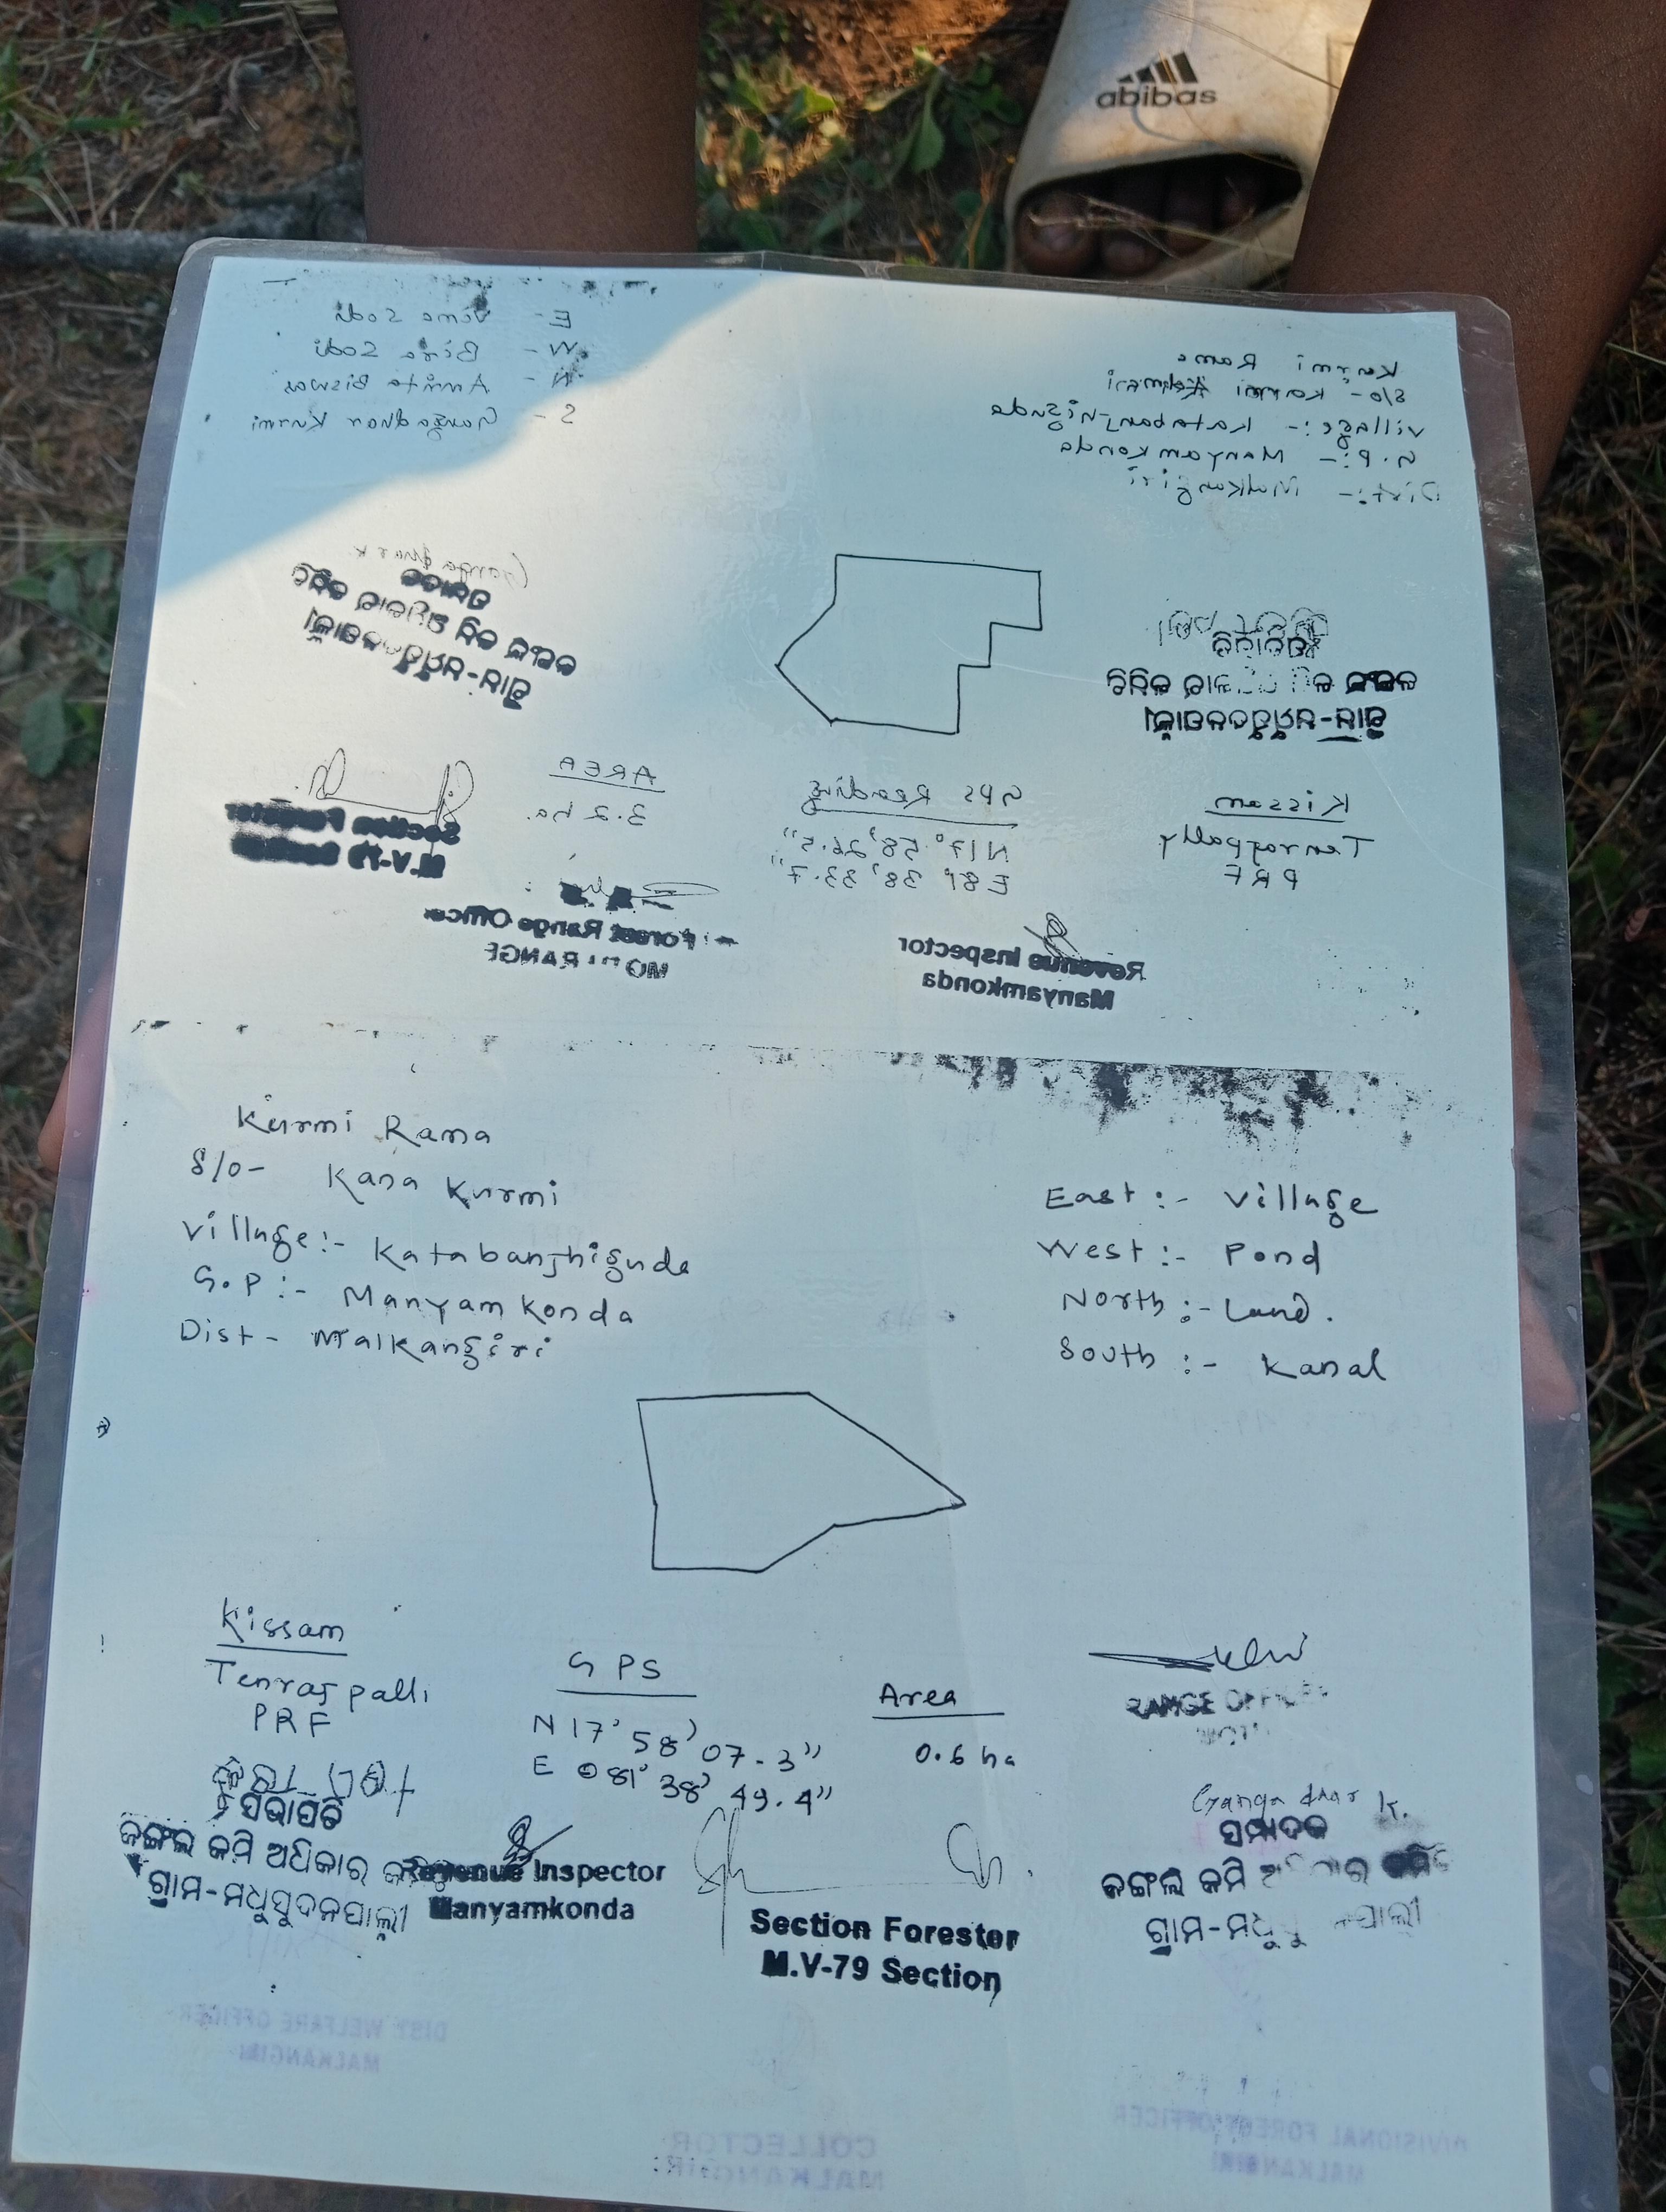 abibas
E - Vima Sodi
W - Bira Sodi
N - Amrita Biswas
S - Gangadhar Kurmi
Kurmi Rama
S/o - Kurmi
Village :- Katabanjhiguda
G.P :- Manyamkonda
Dist :- Malkangiri
Gangadhar K
ସମ୍ପାଦକ
ଜଙ୍ଗଲ ଜମି ଅଧିକାର କମିଟି
ଗ୍ରାମ-ମଧୁସୁଦନପାଲ୍ଲୀ
ସଭାପତି
ଜଙ୍ଗଲ କମିଟି
ଗ୍ରାମ-ମଧୁସୁଦନପାଲ୍ଲୀ
Kissam
Tenrajpally
PRF
GPS Reading
N 17° 58' 26.5"
E 81° 38' 33.7"
AREA
3.2 ha.
Section Forester
M.V-79 Section
Forest Range Officer
MOTU RANGE
Revenue Inspector
Manyamkonda
Kurmi Rama
S/o- Kana Kurmi
Village :- Katabanjhiguda
G.P :- Manyamkonda
Dist - Malkangiri
East :- Village
West :- Pond
North :- Land.
South :- Kanal
Kissam
Tenrajpalli
PRF
GPS
N 17° 58' 07.3"
E 081° 38' 49.4"
Area
0.6 ha
RANGE OFFICER
MOTU
ସଭାପତି
ଜଙ୍ଗଲ ଜମି ଅଧିକାର
ଗ୍ରାମ-ମଧୁସୁଦନପାଲ୍ଲୀ
Revenue Inspector
Manyamkonda
Section Forester
M.V-79 Section
Gangadhar K.
ସମ୍ପାଦକ
ଜଙ୍ଗଲ ଜମି
ଗ୍ରାମ-
DIST WELFARE OFFICER
MALKANGIRI
COLLECTOR
MALKANGIRI
DIVISIONAL FOREST OFFICER
MALKANGIRI